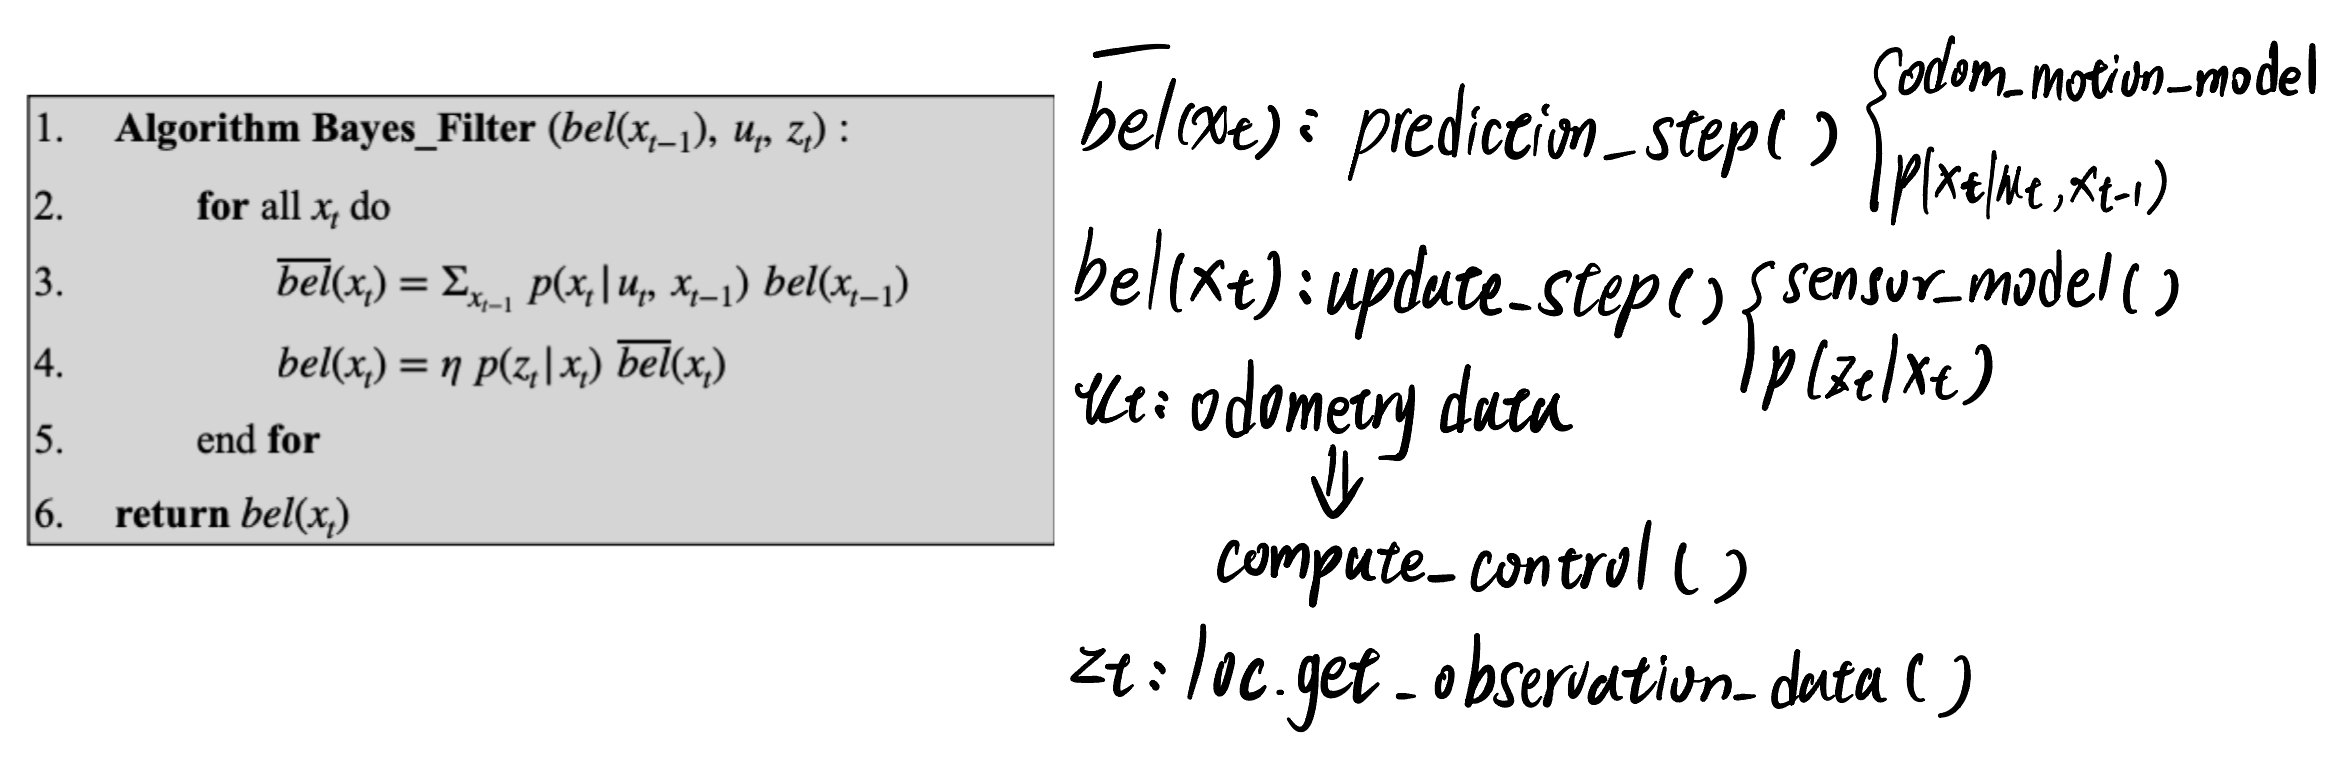 1. Algorithm Bayes_Filter (bel(x_{t−1}), u_t, z_t) :
2. for all x_t do
3. \overline{bel}(x_t) = Σ_{x_{t−1}} p(x_t | u_t, x_{t−1}) bel(x_{t−1})
4. bel(x_t) = η p(z_t | x_t) \overline{bel}(x_t)
5. end for
6. return bel(x_t)
\overline{bel}(x_t): prediction_step() { odom_motion_model
p(x_t|u_t, x_{t-1})
bel(x_t): update_step() { sensor_model()
p(z_t|x_t)
u_t: odometry data
⇓
compute_control()
z_t: loc.get_observation_data()